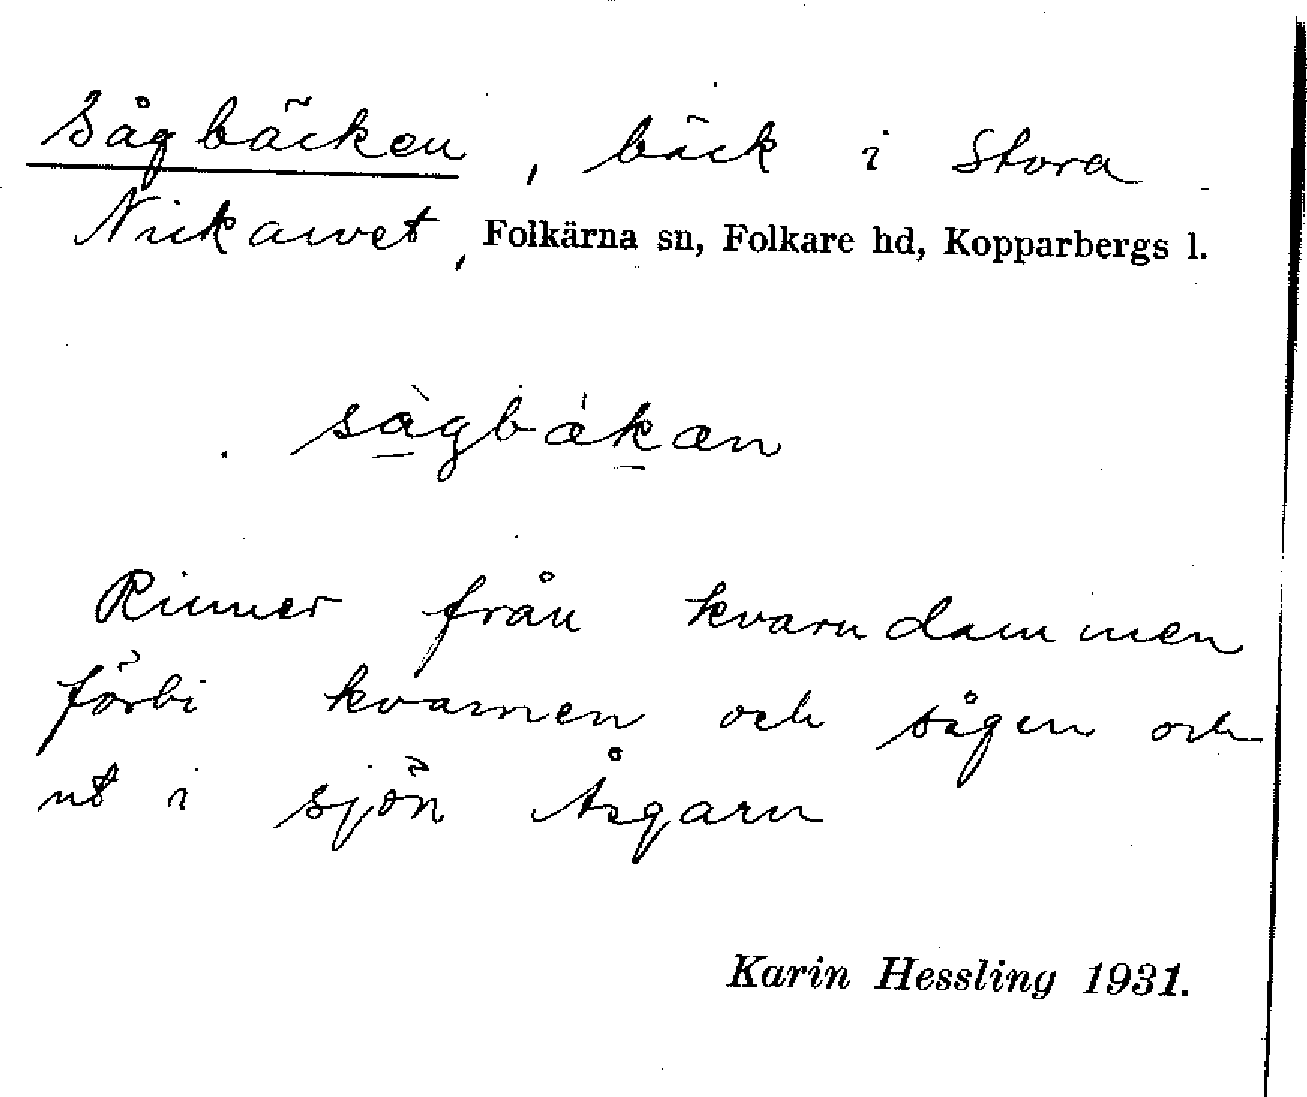 Sågbäcken, bäck i Stora
Nickarvet, Folkärna sn, Folkare hd, Kopparbergs l.
sàgbákan
Rinner från kvarndammen
förbi kvarnen och sågen och
ut i sjön Åsgarn
Karin Hessling 1931.